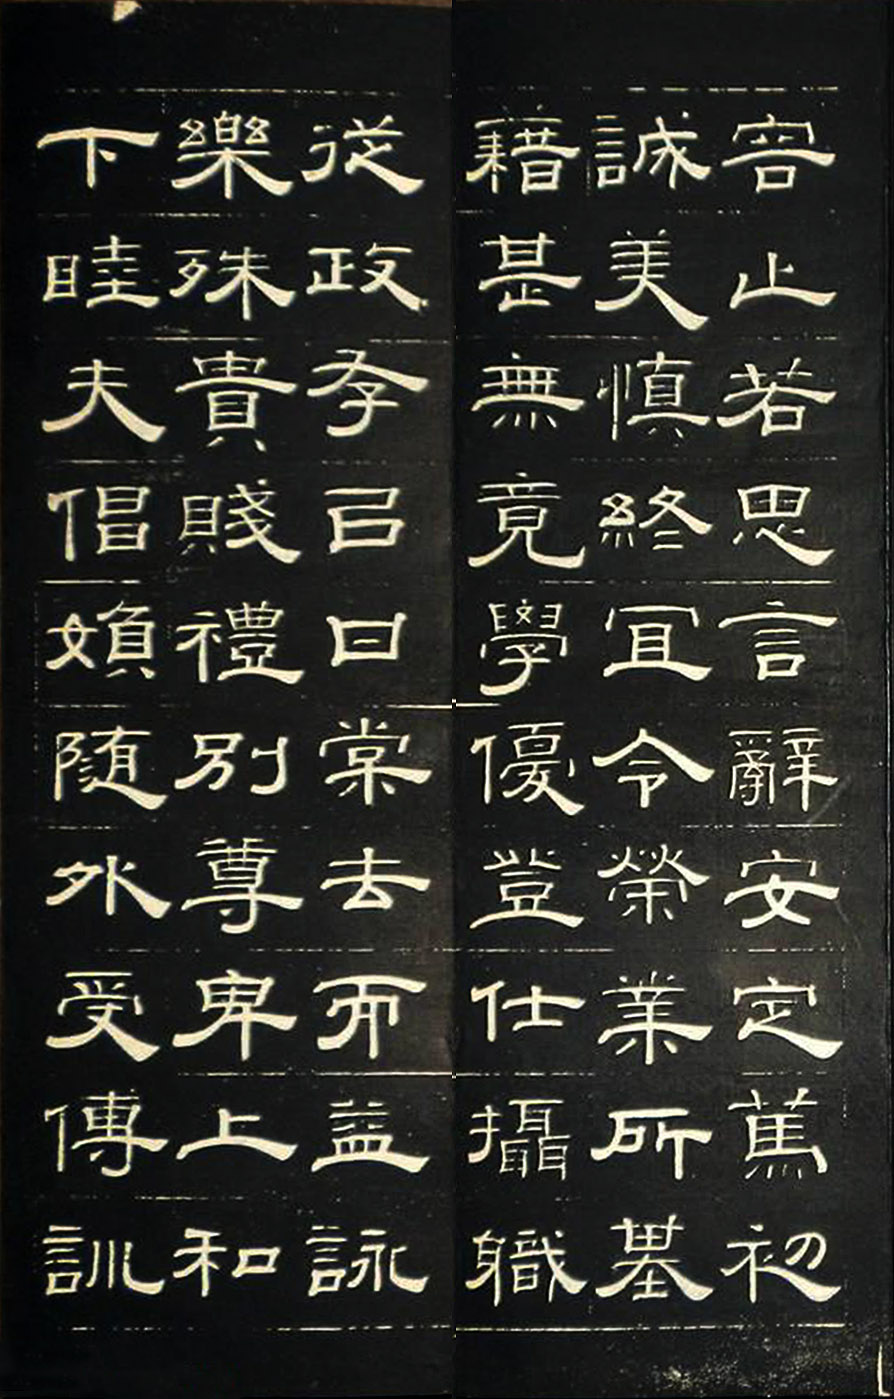 容止若思言辭安定篤初
誠美慎終宜令榮業所基
藉甚無竟學優登仕攝職
從政存㠯甘棠去而益詠
樂殊貴賤禮別尊卑上和
下睦夫倡婦随外受傳訓